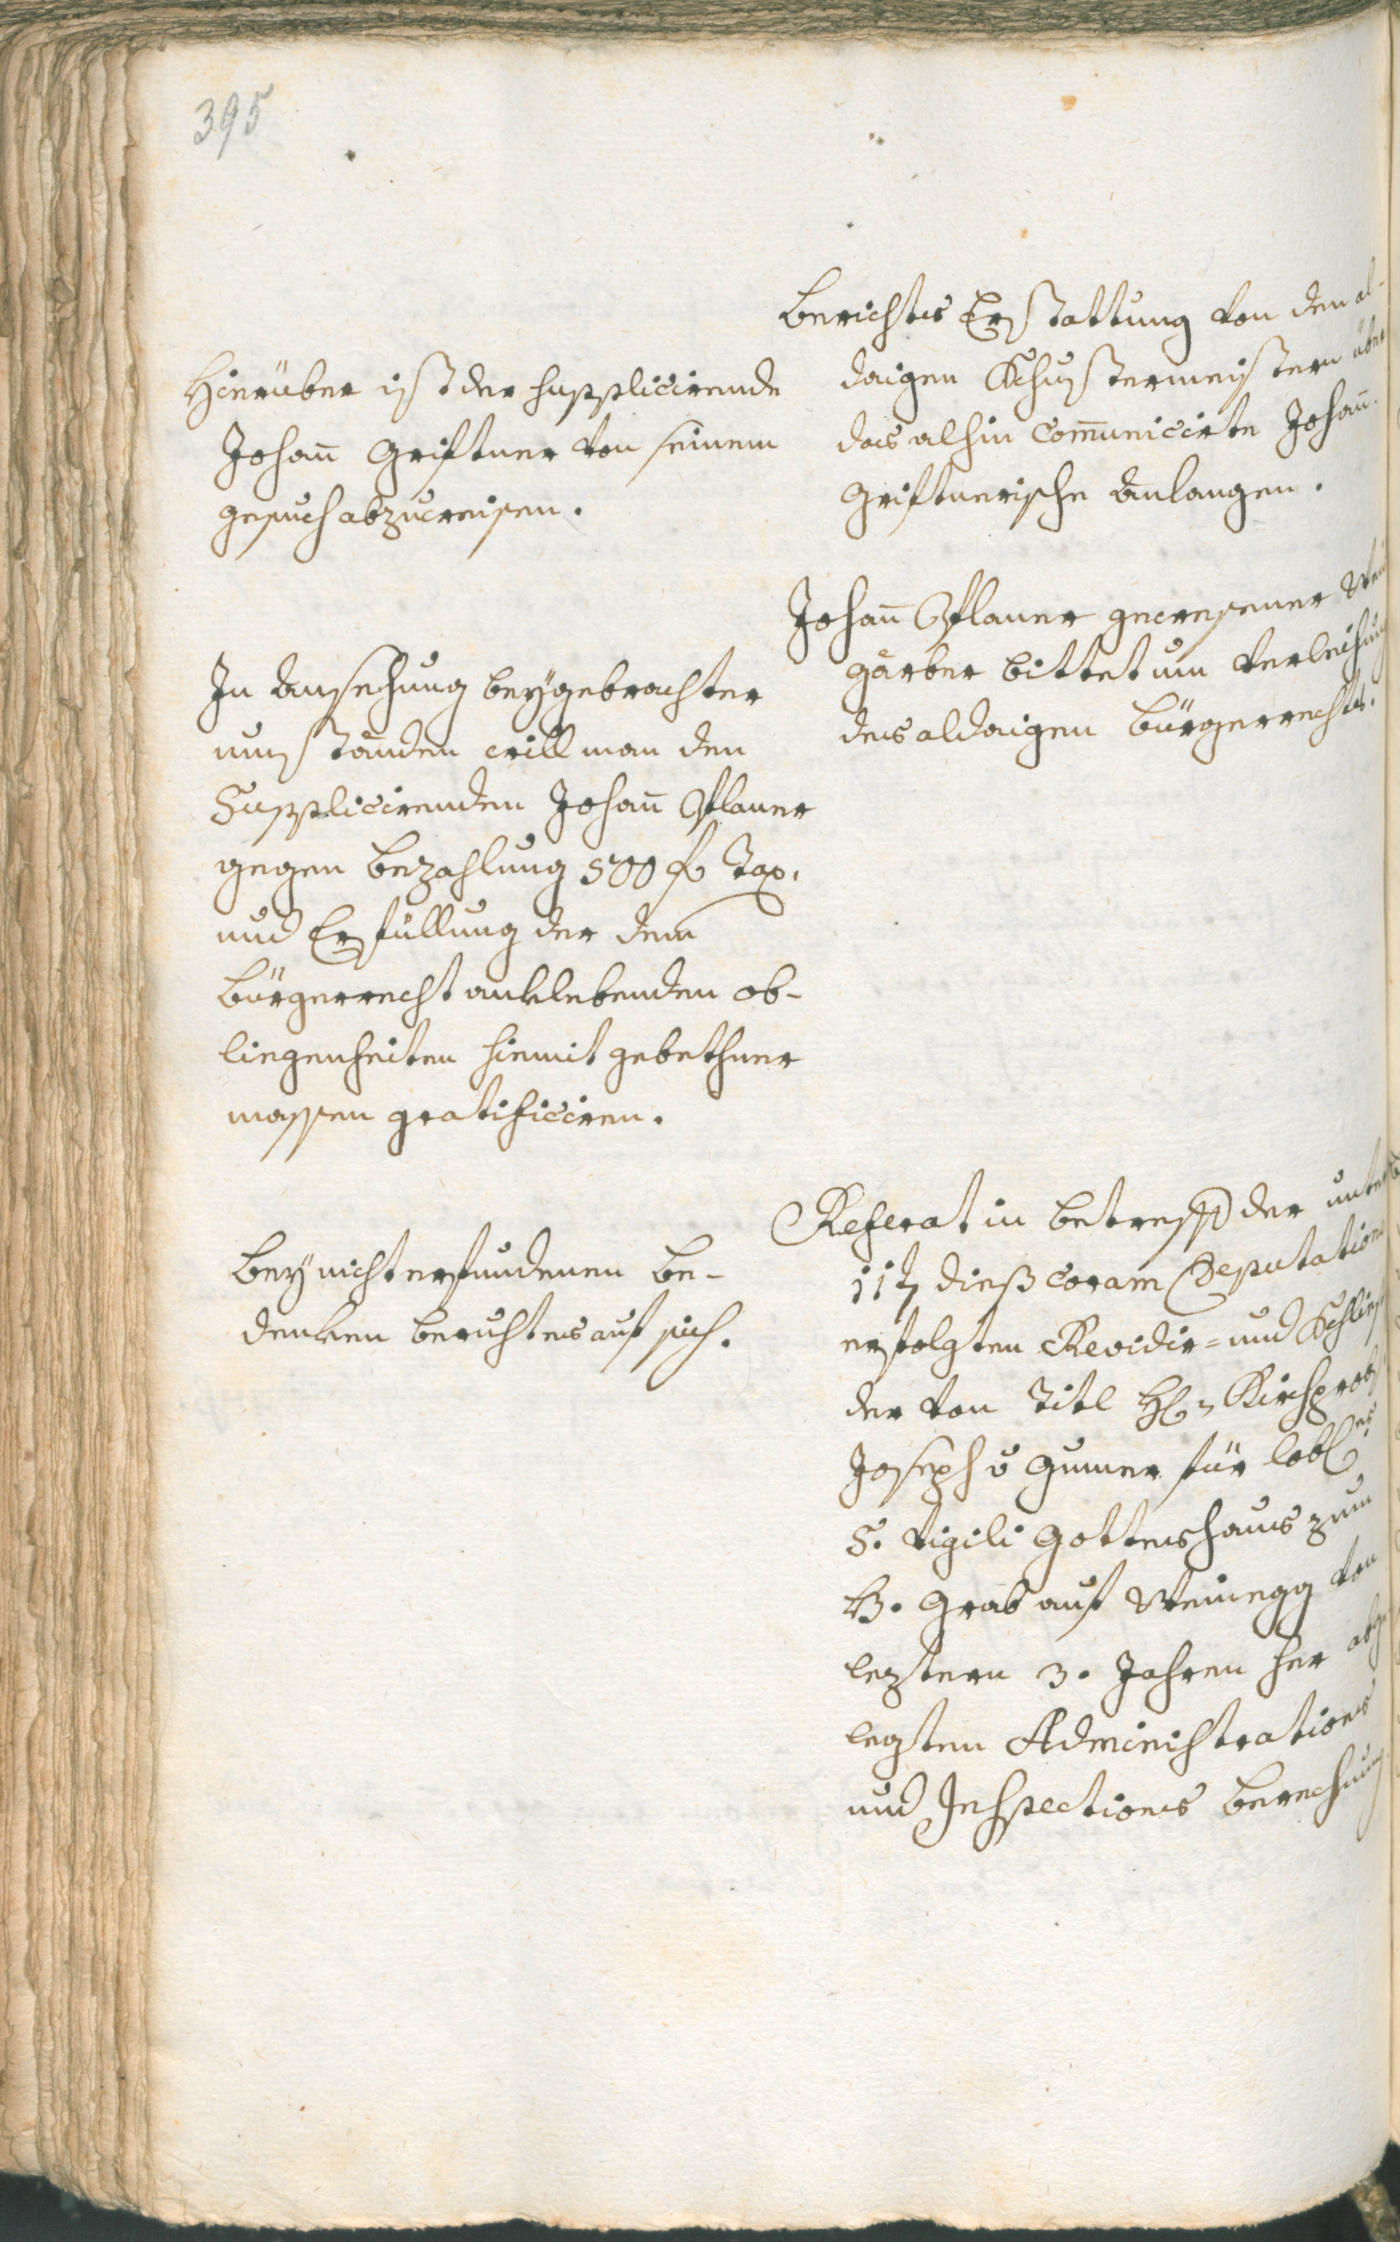 395
Hierüber ist der supplicirende
Johan̄ Griftner von seinem
gesuch abzuweisen.
In Ansechung beÿgebrachter
umständen will man den
Supplicirenden Johan̄ Pflauer
gegen bezahlung 500 f Tax,
und Erfüllung der dem
bürgerrecht anklebenden ob-
liegenheiten hiemit gebethner
massen gratificiren.
Beÿ nicht erfundenen be-
denken beruhtes auf sich.
Berichts Erstattung von den al-
daigen Schustermeistern über
das alhin com̄unicirte Johan̄
Griftnerische Anlangen.
Johan̄ Pflauer gewesener
gärber bittet um verleichung
des aldaigen bürgerrechts.
Referat in betreff der unterm
11t dieß coram Deputatione
erfolgten Revidir- und
der von Titl H: Kirchprobst
Joseph v Gumer für lobl:es
S. Vigili Gotteshaus zum
H. Grab auf Weinegg von
leztern 3. Jahren her abge
legten Administrations
und Inspections berechnung